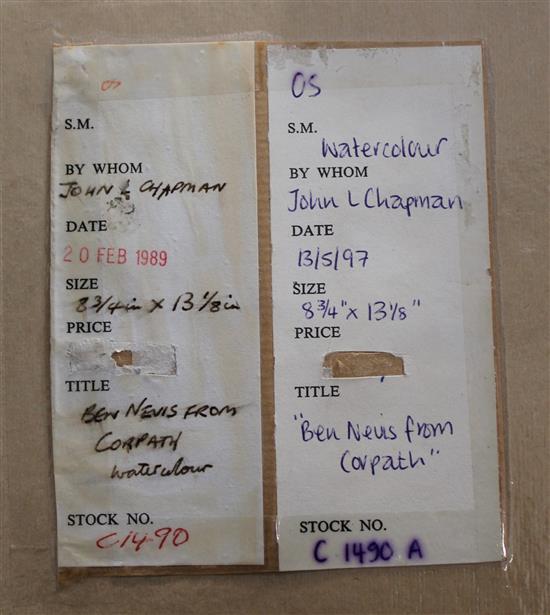 S.M.
BY WHOM
JOHN L CHAPMAN
DATE
20 FEB 1989
SIZE
8 3/4 in x 13 1/8 in
PRICE
TITLE
BEN NEVIS FROM
CORPATH
watercolour
STOCK NO.
C1490
OS
S.M.
Watercolour
BY WHOM
John L Chapman
DATE
13/5/97
SIZE
8 3/4" x 13 1/8"
PRICE
TITLE
"Ben Nevis from
Corpath"
STOCK NO.
C 1490 A